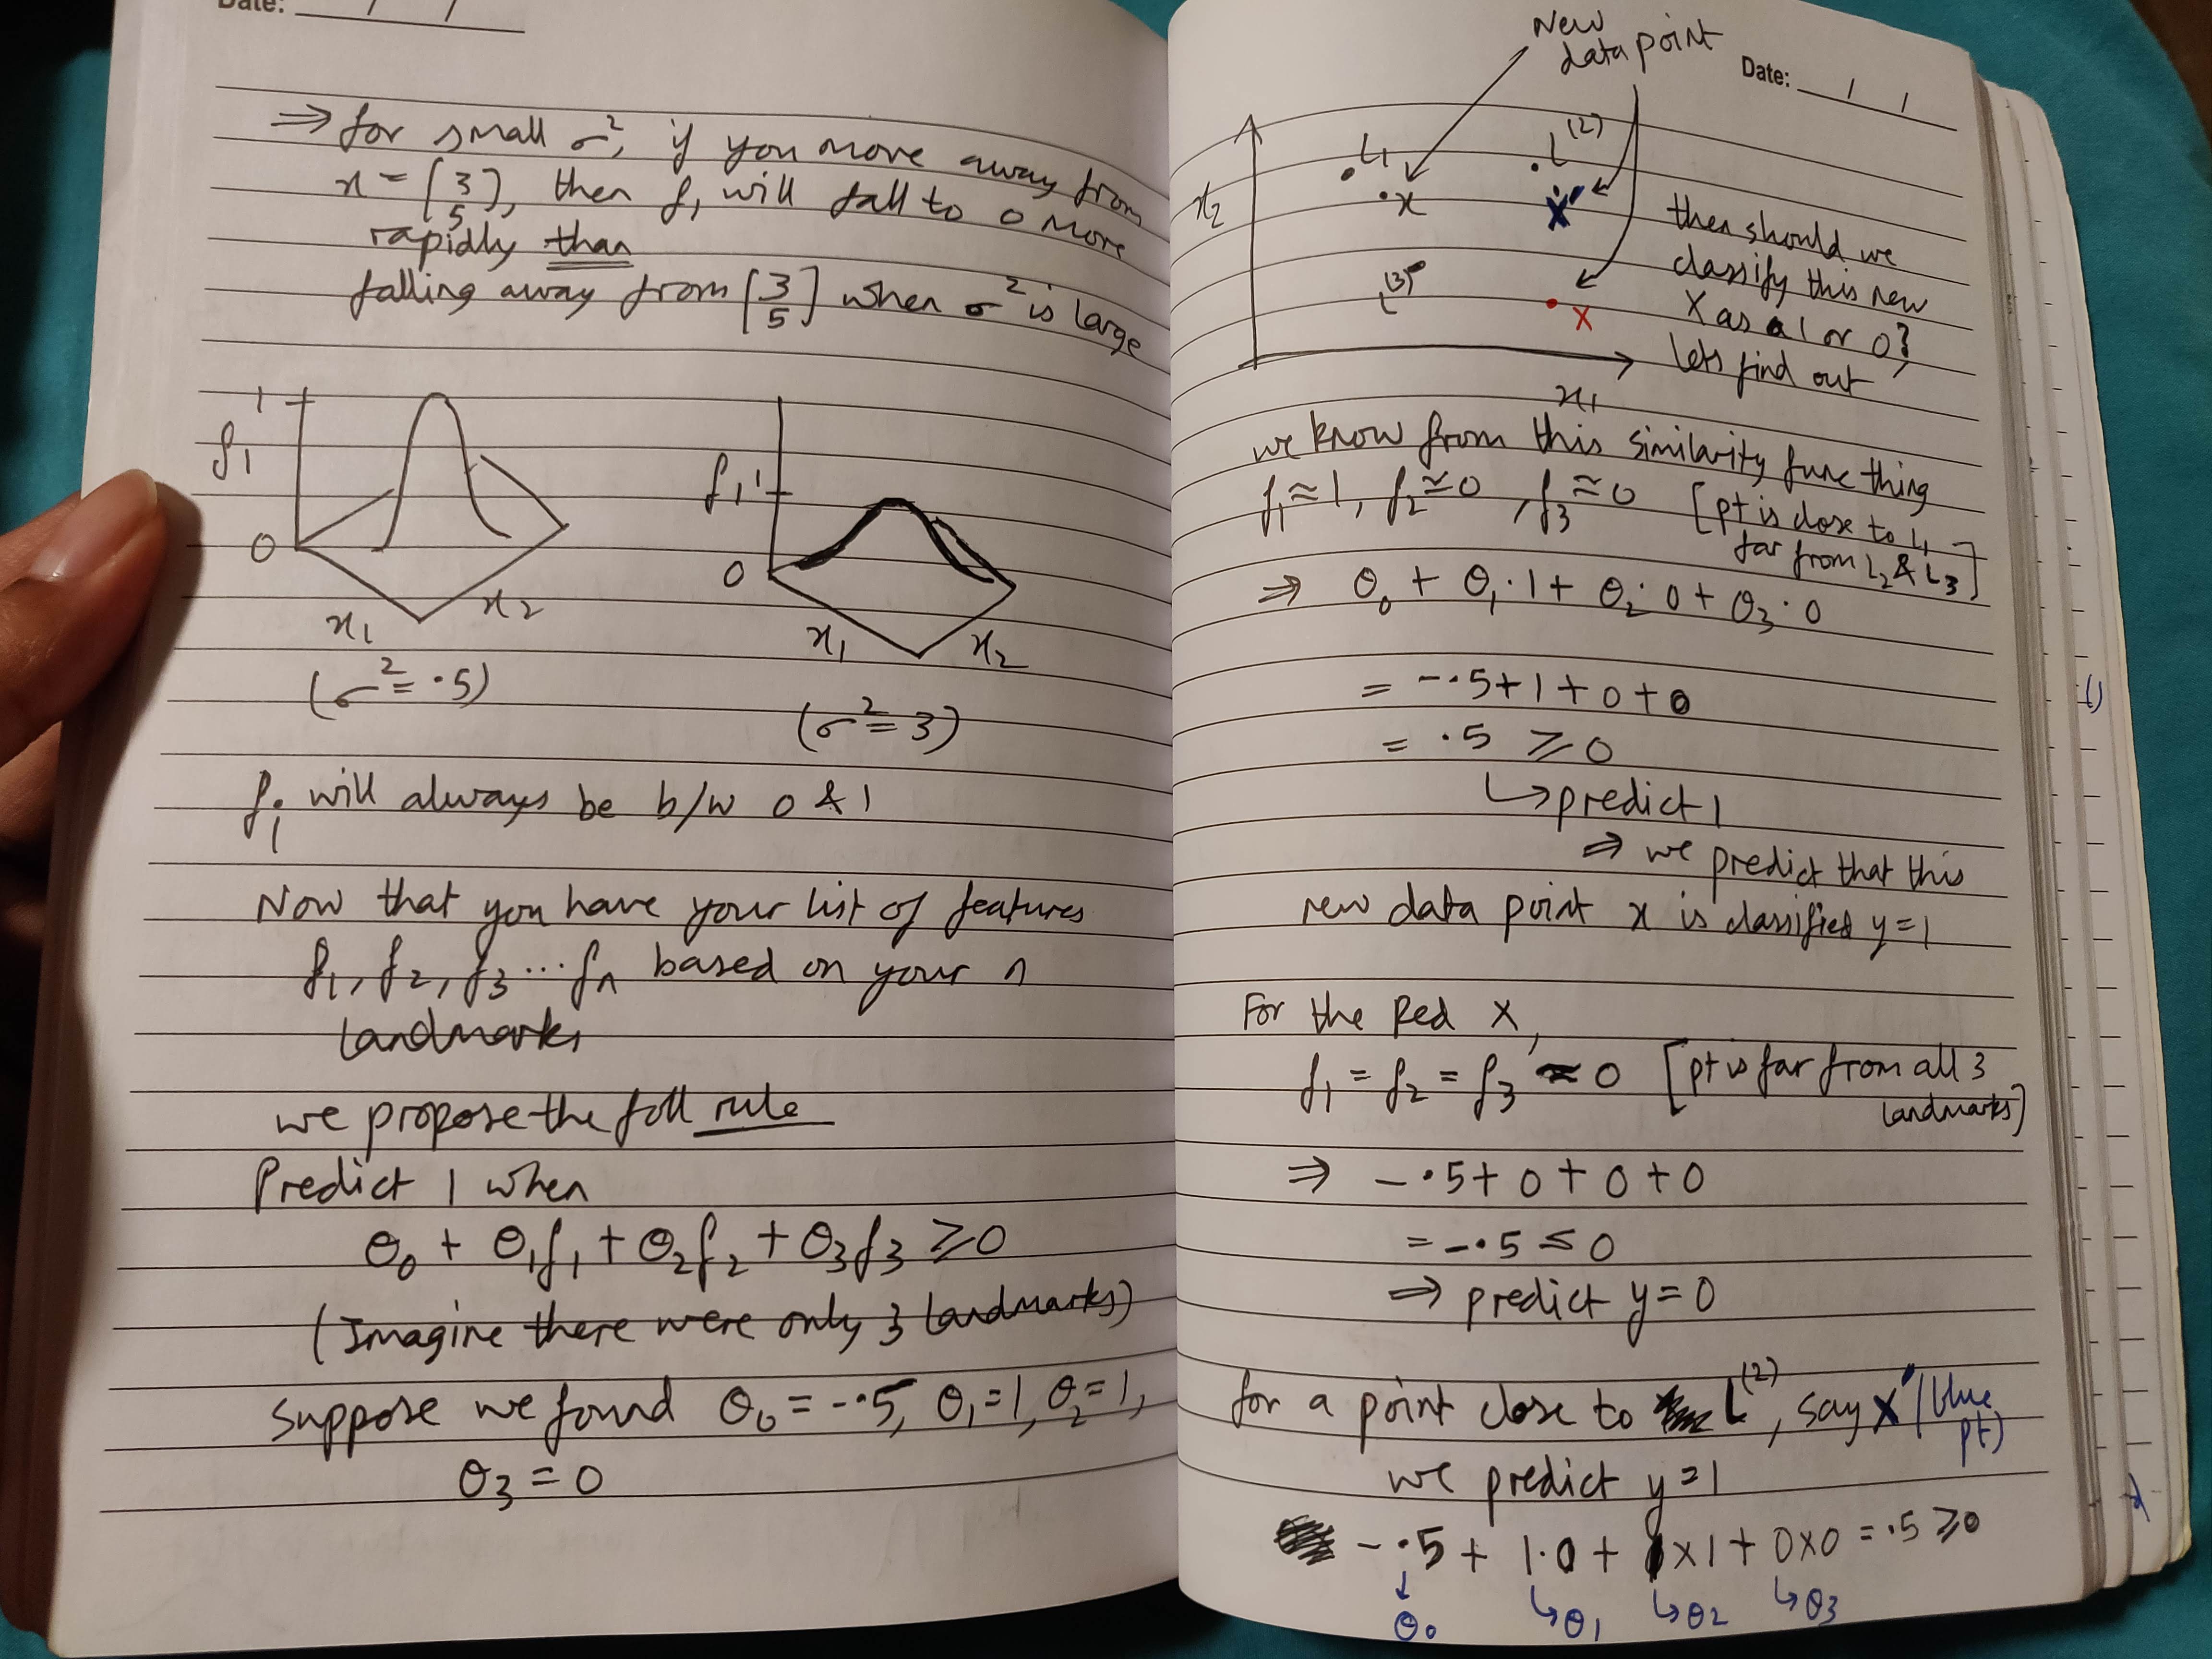 Date: / /
⇒ for small σ², if you move away from
x = [3 5], then f₁ will fall to 0 more
rapidly than
falling away from [3 5] when σ² is large
1
f₁
0
x₁
x₂
(σ² = ·5)
f₁
1
0
x₁
x₂
(σ² = 3)
fᵢ will always be b/w 0 & 1
Now that you have your list of features
f₁, f₂, f₃ ... fₙ based on your n
landmarks
we propose the foll rule
Predict 1 when
θ₀ + θ₁f₁ + θ₂f₂ + θ₃f₃ ≥ 0
(Imagine there were only 3 landmarks)
Suppose we found θ₀ = -·5, θ₁ = 1, θ₂ = 1,
θ₃ = 0
New
data point
Date: / /
L₁
L⁽²⁾
x₂
x
X'
L⁽³⁾
x
x₁
then should we
classify this new
X as a 1 or 0?
lets find out
we know from this similarity func thing
f₁ ≈ 1, f₂ ≃ 0, f₃ ≈ 0 [pt is close to L₁
far from L₂ & L₃]
⇒ θ₀ + θ₁·1 + θ₂·0 + θ₃·0
= -·5 + 1 + 0 + 0
= ·5 ≥ 0
↳ predict 1
⇒ we predict that this
new data point x is classified y = 1
For the Red X,
f₁ = f₂ = f₃ ≈ 0 [pt is far from all 3
landmarks]
⇒ -·5 + 0 + 0 + 0
= -·5 ≤ 0
⇒ predict y = 0
for a point close to L⁽²⁾, say X' (blue
pt)
we predict y = 1
-·5 + 1·0 + 1×1 + 0×0 = ·5 ≥ 0
↓ θ₀ ↳ θ₁ ↳ θ₂ ↳ θ₃